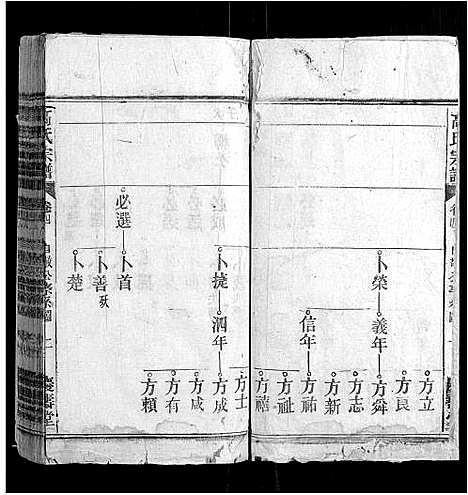 高氏宗譜
卜榮
義年
信年
方立
方良
方舜
方新
方志
方祐
方祉
方禧
卜捷
泗年
方士
方成
方咸
方有
方賴
必選
卜首
卜善
卜楚
高氏宗譜
卷四
二
慶善堂